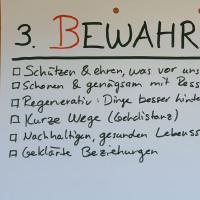 3. BEWAHR
□ Schützen & ehren, was vor uns
□ Schonen & genügsam mit Ress
□ Regenerativ: Dinge besser hinte
□ Kurze Wege (Gehdistanz)
□ Nachhaltigen, gesunden Lebenss
□ Geklärte Beziehungen